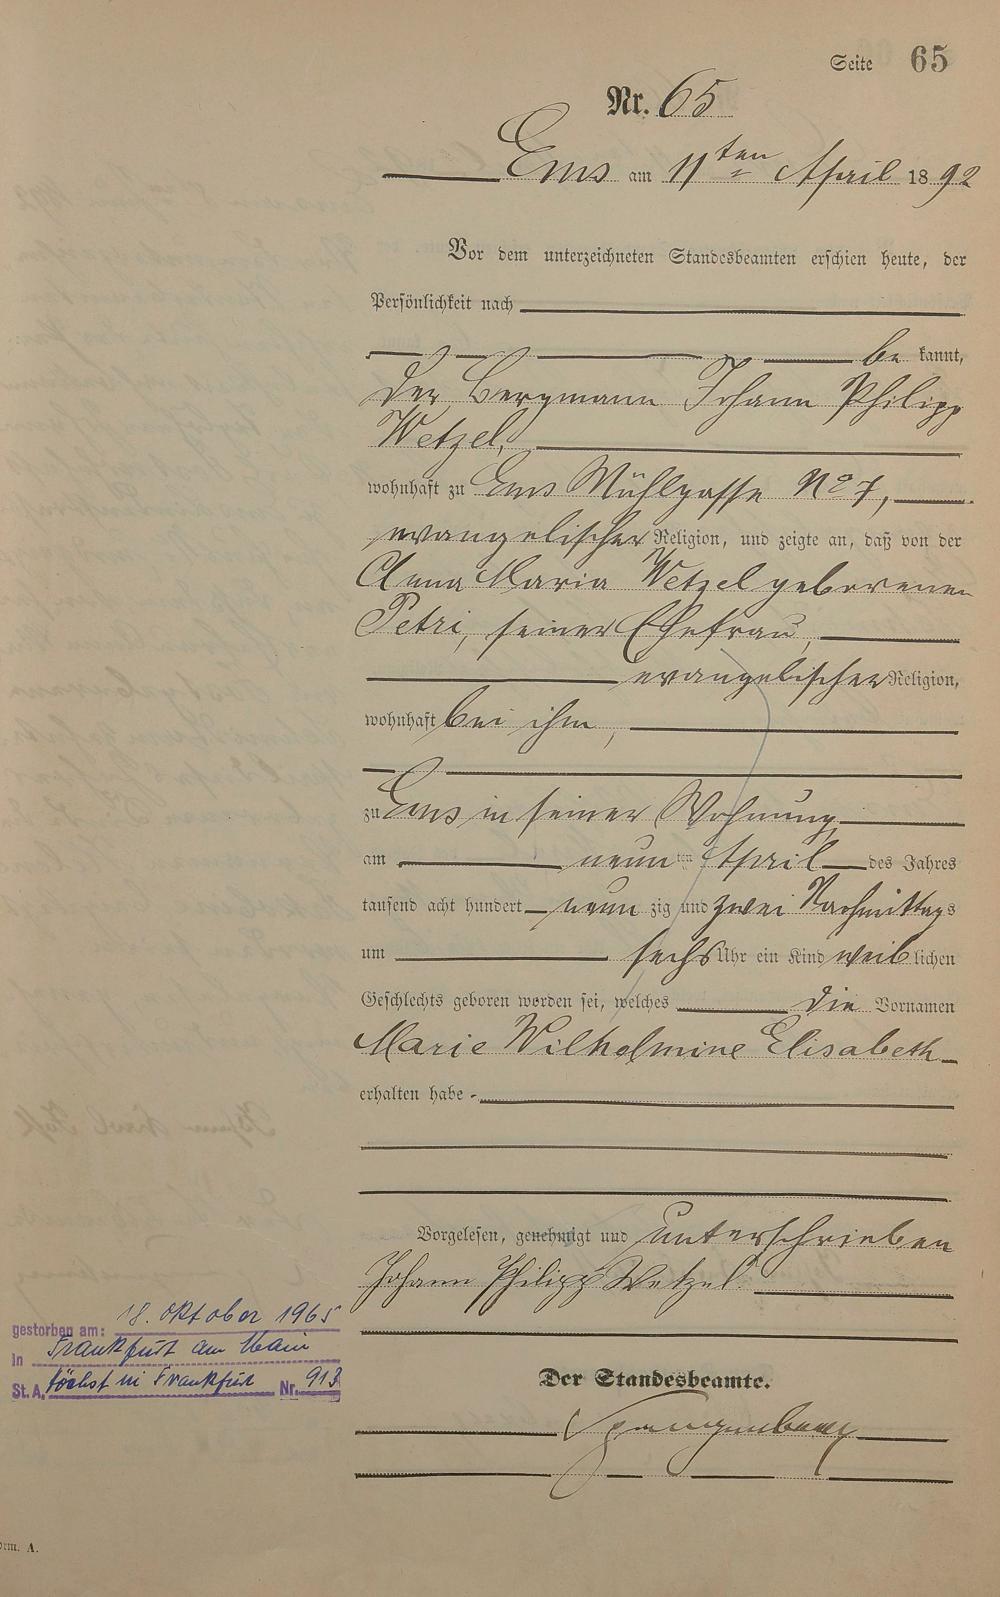 Seite 65
Nr. 65
Ems am 11ten April 1892
Vor dem unterzeichneten Standesbeamten erschien heute, der
Persönlichkeit nach
bekannt,
der Bergmann Johann Philipp
Wetzel,
wohnhaft zu Ems Mühlgasse No 7,
evangelischer Religion, und zeigte an, daß von der
Anna Maria Wetzel geborenen
Petri, seiner Ehefrau,
evangelischer Religion,
wohnhaft bei ihm,
zu Ems in seiner Wohnung
am neunten April des Jahres
tausend acht hundert neunzig und zwei Nachmittags
um sechs Uhr ein Kind weiblichen
Geschlechts geboren worden sei, welches die Vornamen
Marie Wilhelmine Elisabeth
erhalten habe
Vorgelesen, genehmigt und unterschrieben
Johann Philipp Wetzel
gestorben am: 18. Oktober 1965
in Frankfurt am Main
St. A. Höchst in Frankfurt Nr. 913
Der Standesbeamte.
orm. A.